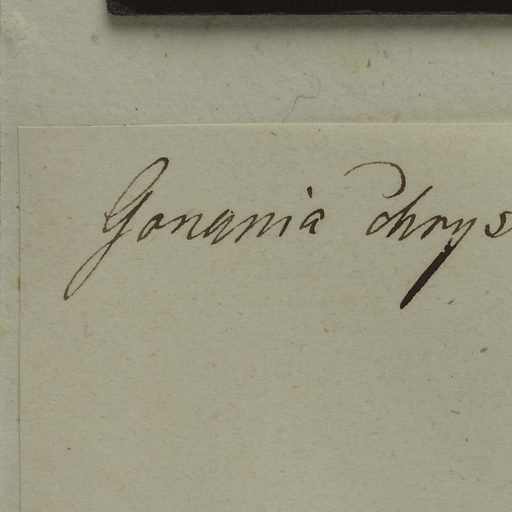 Gonania Chrys